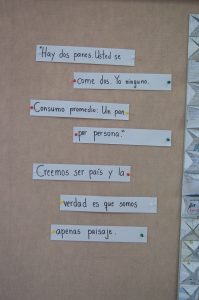 "Hay dos panes. Usted se
come dos. Yo ninguno.
Consumo promedio: Un pan
por persona."
Creemos ser país y la
verdad es que somos
apenas paisaje.